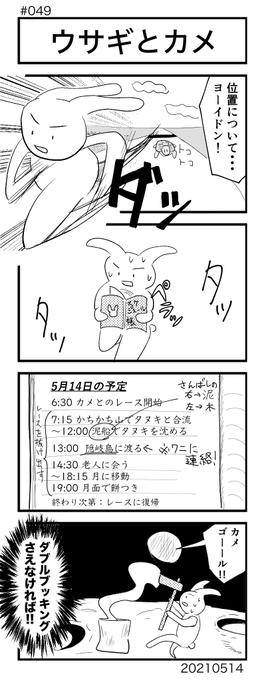 #049
ウサギとカメ
位置について・・・
ヨーイドン！
ダッ
トコ
トコ
タッ
タッ
ペラ
5月14日の予定
さんばしの
右→泥
左→木
6:30 カメとのレース開始
レースを抜け出す
7:15 かちかち山でタヌキと合流
～12:00 泥船でタヌキを沈める
13:00 隠岐島に渡る← ※ワニに
連絡！
14:30 老人に会う
～18:15 月に移動
19:00 月面で餅つき
終わり次第：レースに復帰
カメ
ゴーール!!
ダブルブッキング
さえなければ!!
20210514